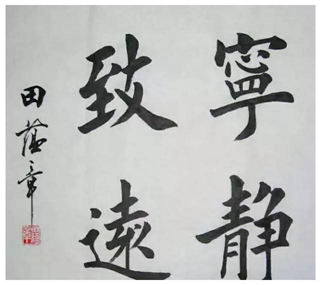 寧靜
致遠
田蘊章